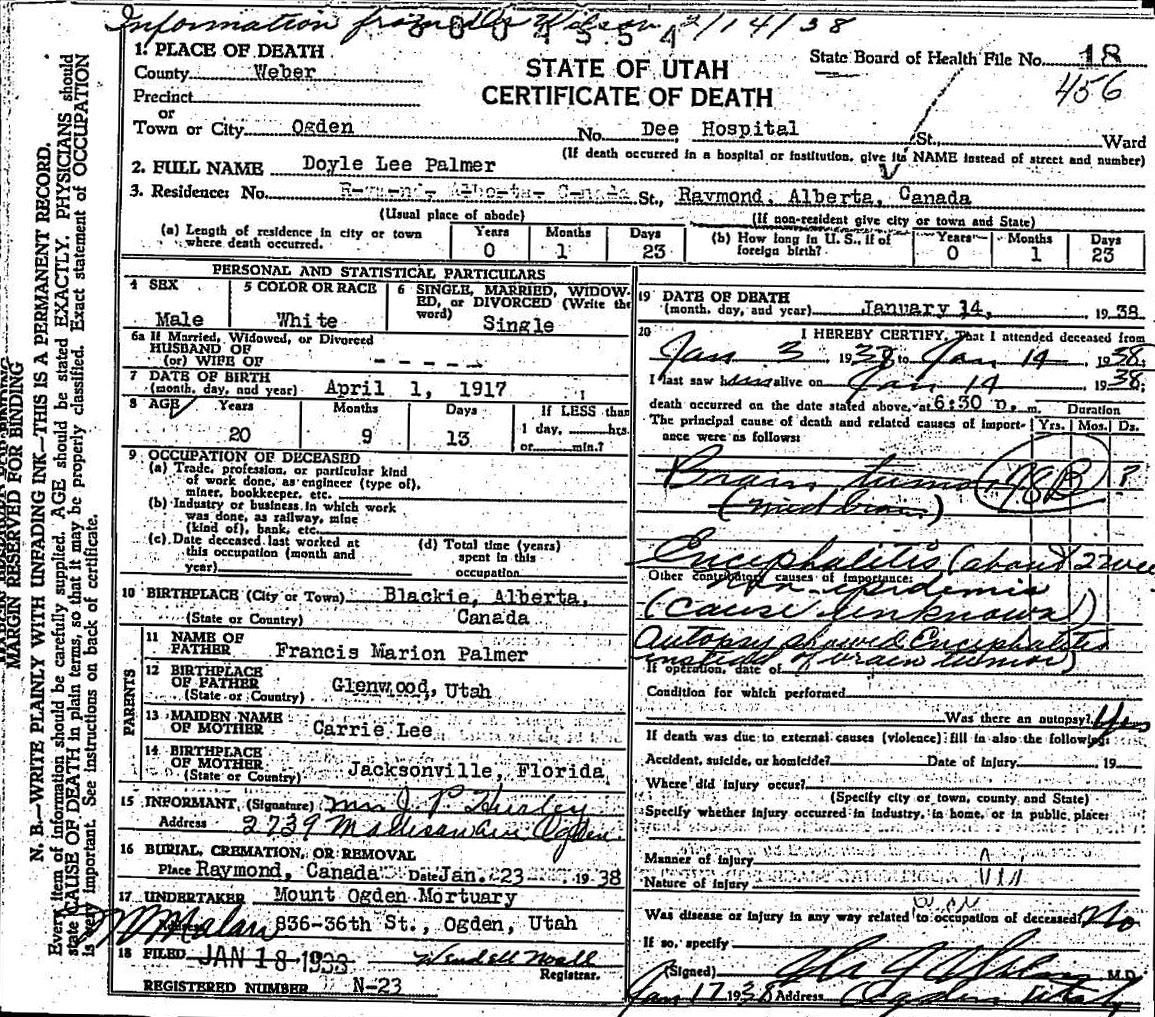 Information from Dr 2/14/38
1. PLACE OF DEATH
County Weber
Precinct
or
Town or City Ogden No. Dee Hospital St., Ward
(If death occurred in a hospital or institution, give its NAME instead of street and number)
STATE OF UTAH
CERTIFICATE OF DEATH
State Board of Health File No. 18
456
2. FULL NAME Doyle Lee Palmer
3. Residence: No. Raymond, Alberta, Canada St., Raymond, Alberta, Canada
(Usual place of abode) (If non-resident give city or town and State)
(a) Length of residence in city or town where death occurred. Years 0 Months 1 Days 23
(b) How long in U. S., if of foreign birth? Years 0 Months 1 Days 23
PERSONAL AND STATISTICAL PARTICULARS
4 SEX Male
5 COLOR OR RACE White
6 SINGLE, MARRIED, WIDOWED, or DIVORCED (Write the word) Single
6a If Married, Widowed, or Divorced
HUSBAND OF
(or) WIFE OF - - - -
7 DATE OF BIRTH
(month, day, and year) April 1, 1917
8 AGE Years 20 Months 9 Days 13
If LESS than
1 day, hrs.
or min.?
9 OCCUPATION OF DECEASED
(a) Trade, profession, or particular kind
of work done, as engineer (type of),
miner, bookkeeper, etc.
(b) Industry or business in which work
was done, as railway, mine
(kind of), bank, etc.
(c) Date deceased last worked at
this occupation (month and
year)
(d) Total time (years)
spent in this
occupation
10 BIRTHPLACE (City or Town) Blackie, Alberta,
(State or Country) Canada
PARENTS
11 NAME OF
FATHER Francis Marion Palmer
12 BIRTHPLACE
OF FATHER Glenwood, Utah
(State or Country)
13 MAIDEN NAME
OF MOTHER Carrie Lee
14 BIRTHPLACE
OF MOTHER
(State or Country) Jacksonville, Florida
15 INFORMANT, (Signature) Mrs J. P. Hurley
Address 2739 Madison Ave Ogden
16 BURIAL, CREMATION, OR REMOVAL
Place Raymond, Canada Date Jan. 23 1938
17 UNDERTAKER Mount Ogden Mortuary
836-36th St., Ogden, Utah
W Malan
18 FILED JAN 18 1938 Wendell Noall
Registrar.
REGISTERED NUMBER N-23
19 DATE OF DEATH
(month, day, and year) January 14, 1938
20 I HEREBY CERTIFY, That I attended deceased from
Jan 3 1938 to Jan 14 1938
I last saw him alive on Jan 14 1938;
death occurred on the date stated above, at 6:30 p. m.
Duration
The principal cause of death and related causes of importance were as follows: Yrs. Mos. Ds.
Brain tumor 78B ?
(mid brain)
Encephalitis (about 2 wee
Other contributory causes of importance:
Non epidemic
(cause unknown)
Autopsy showed Encephalitis
instead of brain tumor)
If operation, date of
Condition for which performed
Was there an autopsy? Yes
If death was due to external causes (violence) fill in also the following:
Accident, suicide, or homicide? Date of Injury 19
Where did injury occur?
(Specify city or town, county and State)
Specify whether injury occurred in industry, in home, or in public place:
Manner of injury
Nature of injury
Was disease or injury in any way related to occupation of deceased? No
If so, specify
(Signed) M.D.
Jan 17 1938 Address Ogden Utah
MARGIN RESERVED FOR BINDING
N. B.—WRITE PLAINLY WITH UNFADING INK—THIS IS A PERMANENT RECORD.
Every item of information should be carefully supplied. AGE should be stated EXACTLY. PHYSICIANS should
state CAUSE OF DEATH in plain terms, so that it may be properly classified. Exact statement of OCCUPATION
is very important. See instructions on back of certificate.